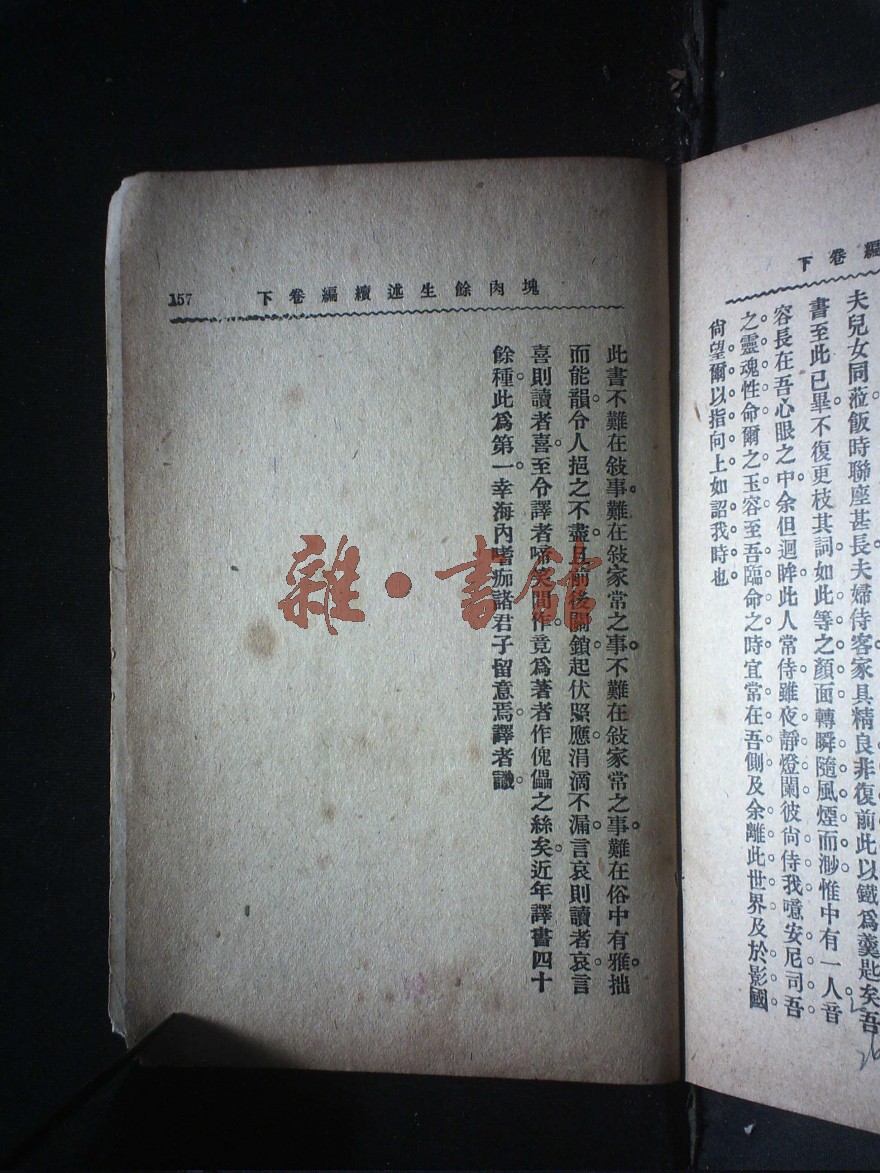 下卷編
夫兒女同蒞飯時聯座甚長夫婦侍客家具精良非復前此以鐵爲羹匙矣。吾
書至此已畢不復更枝其詞如此等之顏面轉瞬隨風煙而渺惟中有一人音
容長在吾心眼之中余但迴眸此人常侍雖夜靜燈闌彼尙侍我噫安尼司吾
之靈魂性命爾之玉容至吾臨命之時宜常在吾側及余離此世界及於影國
尙望爾以指向上如詔我時也
157
下卷編續述生餘肉塊
此書不難在敍事難在敍家常之事不難在敍家常之事難在俗中有雅拙
而能韻令人挹之不盡且前後關鎖起伏照應涓滴不漏言哀則讀者哀言
喜則讀者喜至令譯者啼笑間作竟爲著者作傀儡之絲矣近年譯書四十
餘種此爲第一幸海內嗜痂諸君子留意焉譯者識
雜·書館